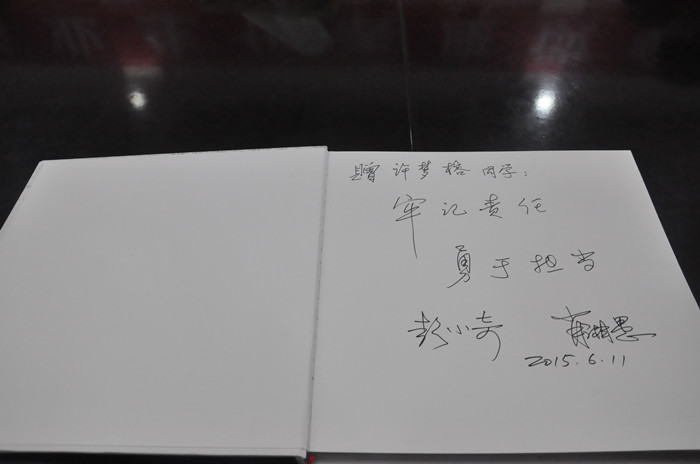 赠 许梦榕 同学：
牢记责任
勇于担当
彭小奇
2015.6.11